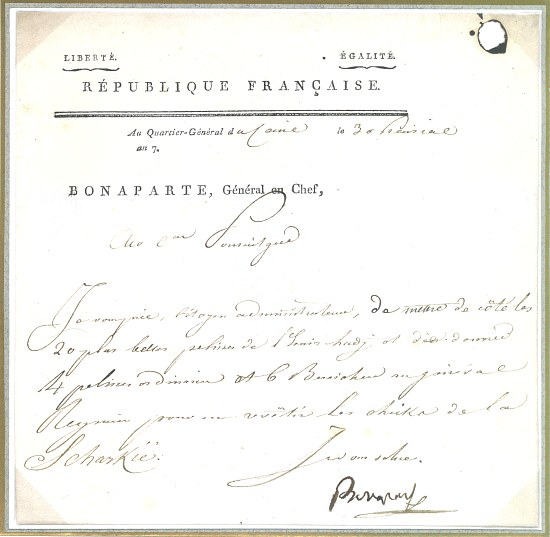 LIBERTÉ. ÉGALITÉ.
RÉPUBLIQUE FRANÇAISE.
Au Quartier-Général du Caire le 30 Prairial
an 7.
BONAPARTE, Général en Chef,
Au Cen Poussielgue
Je vous prie, Citoyen administrateur, de mettre de côté les
20 plus belles pelisses de l'Emir hadj et de donner
4 pelisses ordinaires et 6 au général
Reynier pour en revêtir les cheiks de la
Scharkié.
Je vous salue.
Bonaparte